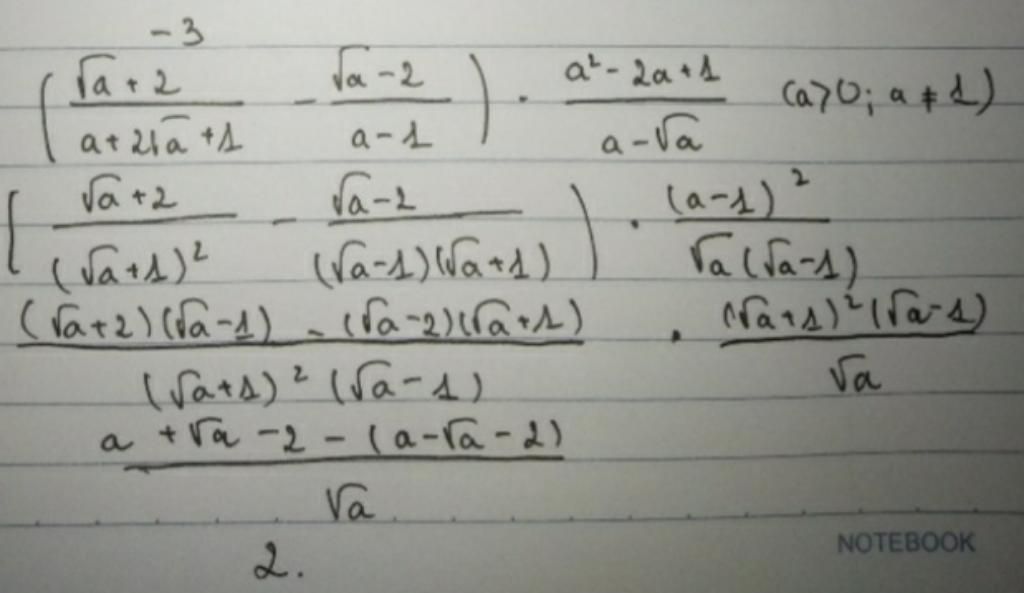 -3
( (√a + 2)/(a + 2√a + 1) - (√a - 2)/(a - 1) ) · (a² - 2a + 1)/(a - √a) (a > 0; a ≠ 1)
( (√a + 2)/((√a + 1)²) - (√a - 2)/((√a - 1)(√a + 1)) ) · (a - 1)²/(√a (√a - 1))
((√a + 2)(√a - 1) - (√a - 2)(√a + 1))/((√a + 1)² (√a - 1)) · ((√a + 1)² (√a - 1))/√a
(a + √a - 2 - (a - √a - 2))/√a
2.
NOTEBOOK